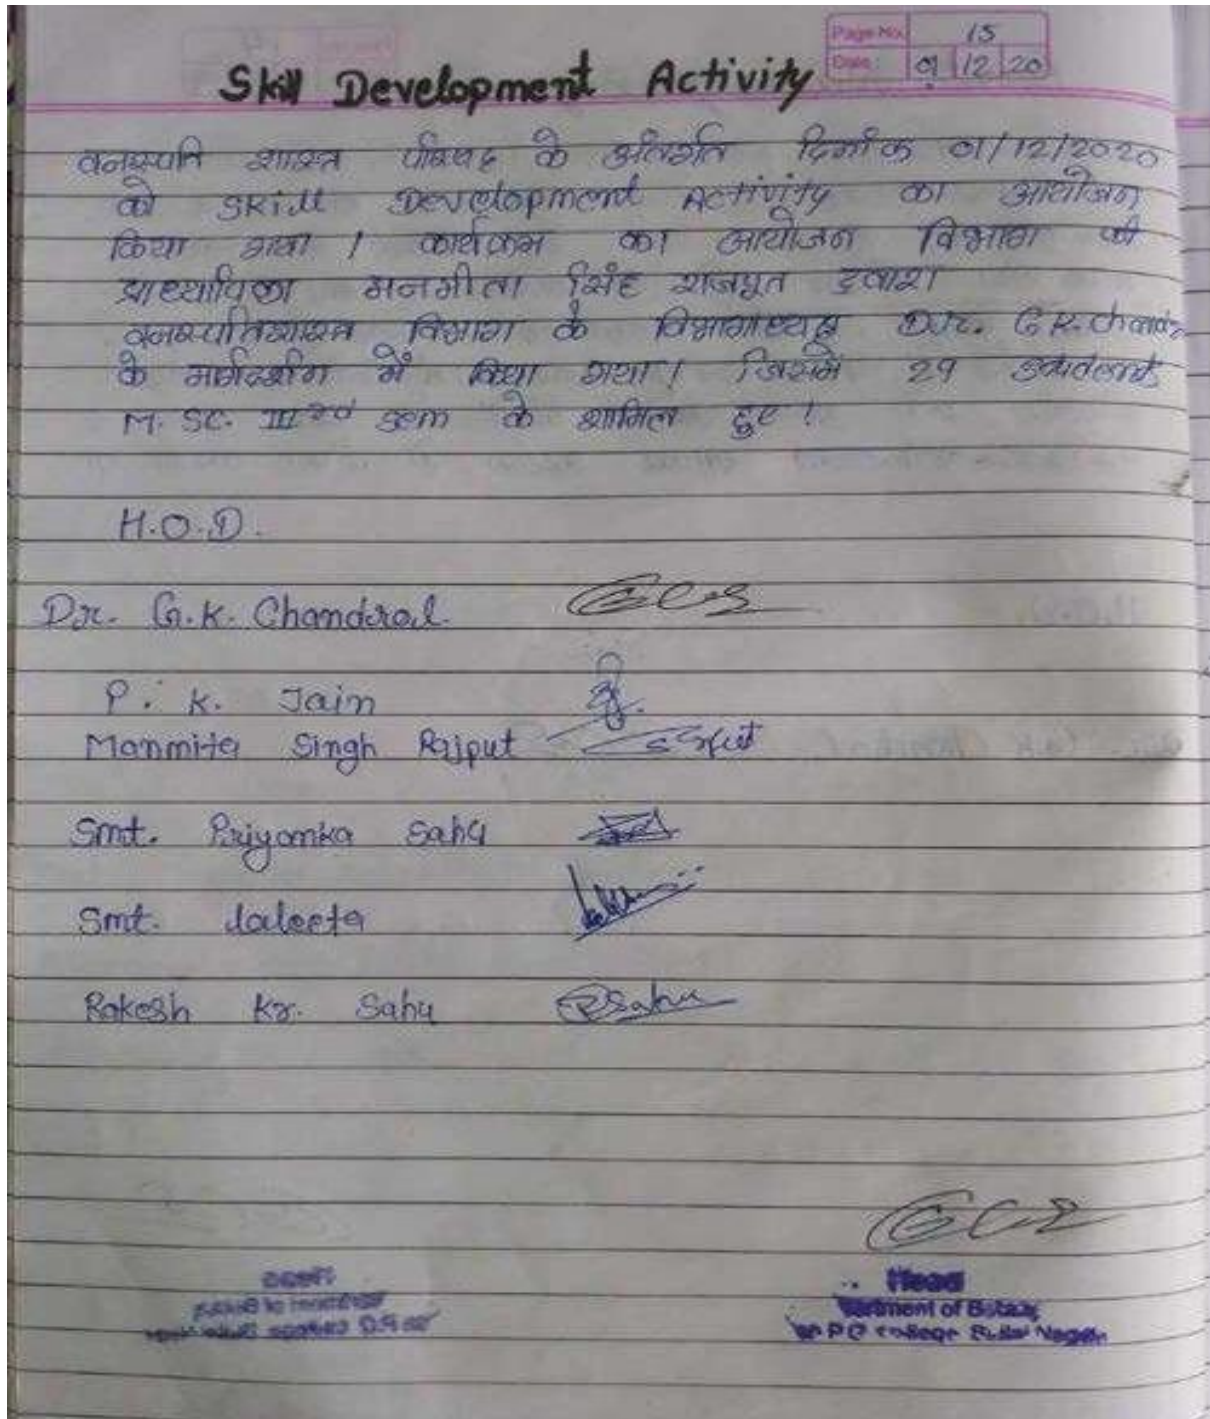 Page No. 15
Date: 9 12 20
Skill Development Activity
वनस्पति शास्त्र परिषद के अंतर्गत दिनांक 01/12/2020
को Skill Development Activity का आयोजन
किया गया । कार्यक्रम का आयोजन विभाग की
प्राध्यापिका मनमीता सिंह राजपूत द्वारा
वनस्पतिशास्त्र विभाग के विभागाध्यक्ष Dr. G.K. Chandral
के मार्गदर्शन में किया गया । जिसमें 29 students
M. SC. III rd sem के शामिल हुए !
H.O.D.
Dr. G.K. Chandral.
P. K. Jain
Manmita Singh Rajput
Smt. Priyanka Sahu
Smt.
Rakesh Kr. Sahu RSahu
Head
of Botany
PG College Nagar